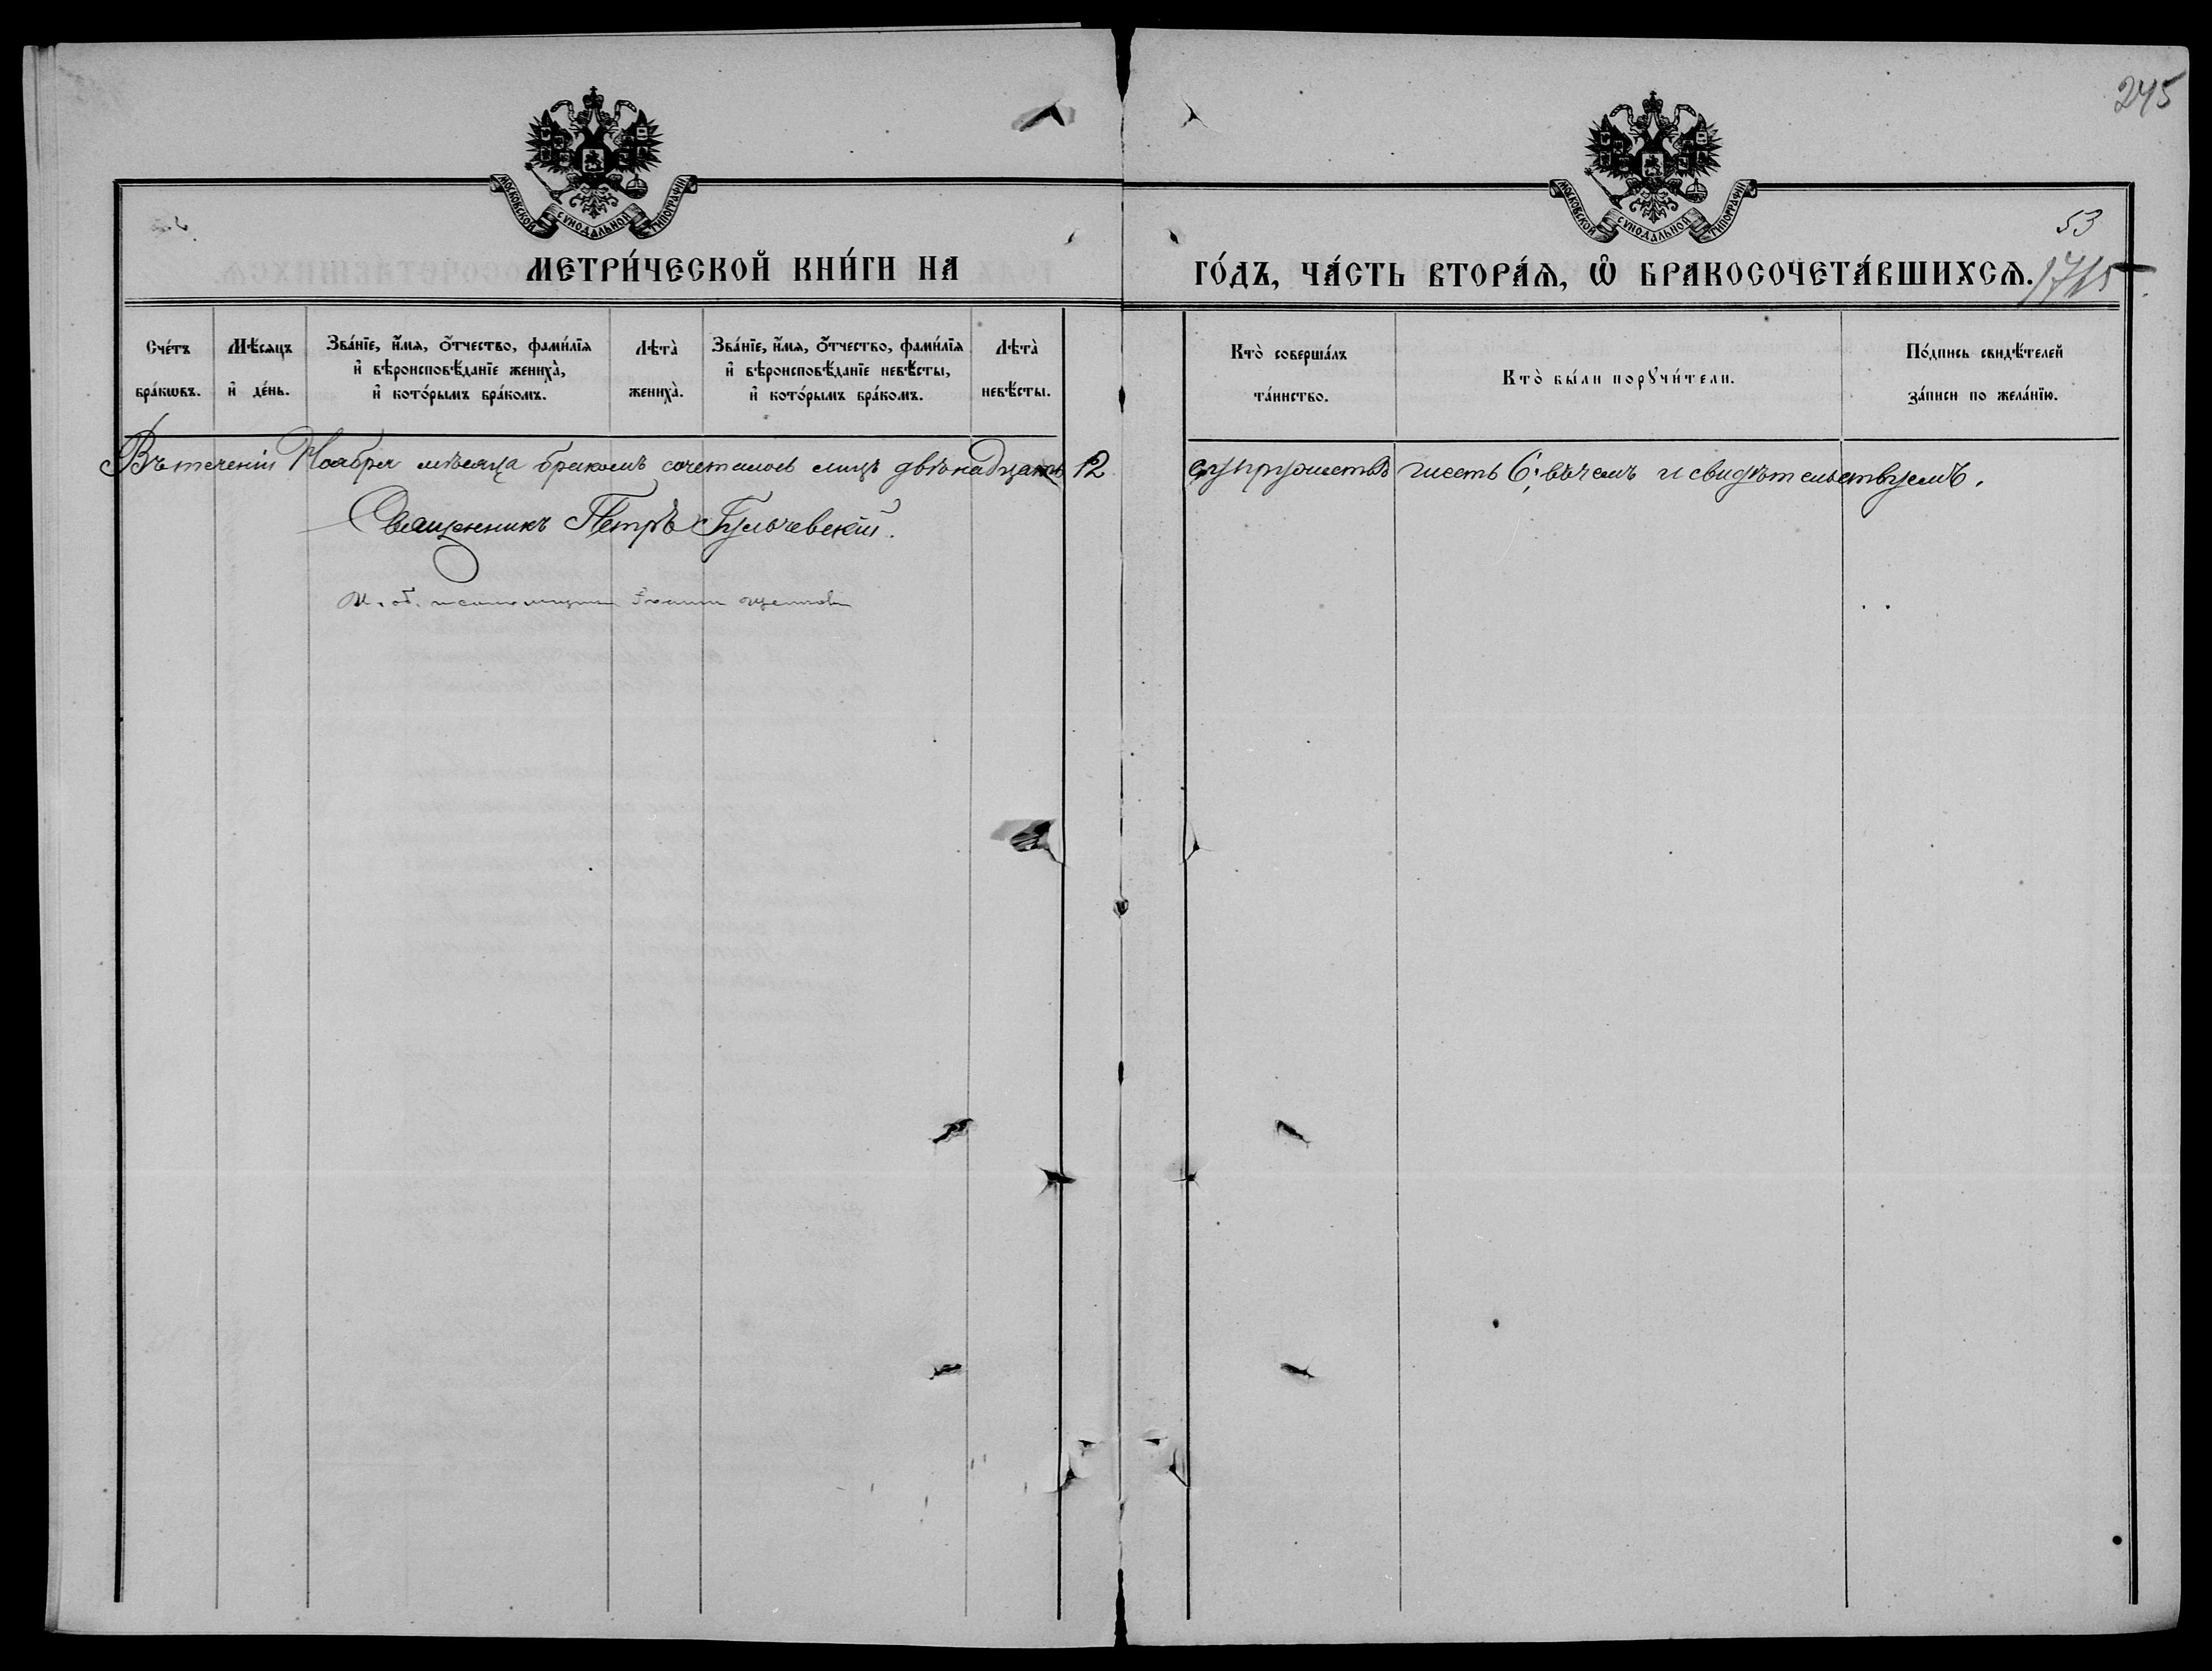 245
МОСКОВСКОЙ СѴНОДАЛЬНОЙ ТИПОГРАФІИ
МОСКОВСКОЙ СѴНОДАЛЬНОЙ ТИПОГРАФІИ
53
МЕТРИ́ЧЕСКОЙ КНИ́ГИ НА ГО́ДЪ, ЧА́СТЬ ВТОРА́Ѧ, Ѽ БРАКОСОЧЕТА́ВШИХСѦ.
1715
Сче́тъ бра́кѡвъ.
Мѣ́сяцъ и҆ де́нь.
Зва́нїе, и҆́мя, ѻ҆́тчество, фами́лїя
и҆ вѣроисповѣ́данїе женихà,
и҆ кото́рымъ бра́комъ.
Лѣтà женихà.
Зва́нїе, и҆́мя, ѻ҆́тчество, фами́лїя
и҆ вѣроисповѣ́данїе невѣ́сты,
и҆ кото́рымъ бра́комъ.
Лѣтà невѣ́сты.
Ктò соверша́лъ
та́инство.
Ктò бы́ли порꙋчи́тели.
По́дпись свидѣ́телей
за́писи по жела́нїю.
Въ теченіи Ноября мѣсяца бракомъ сочеталось лицъ двѣнадцать 12 супружествъ шесть 6; въ чемъ и свидѣтельствуемъ.
Священникъ Петръ Гульчевскій.
И. об. псаломщика